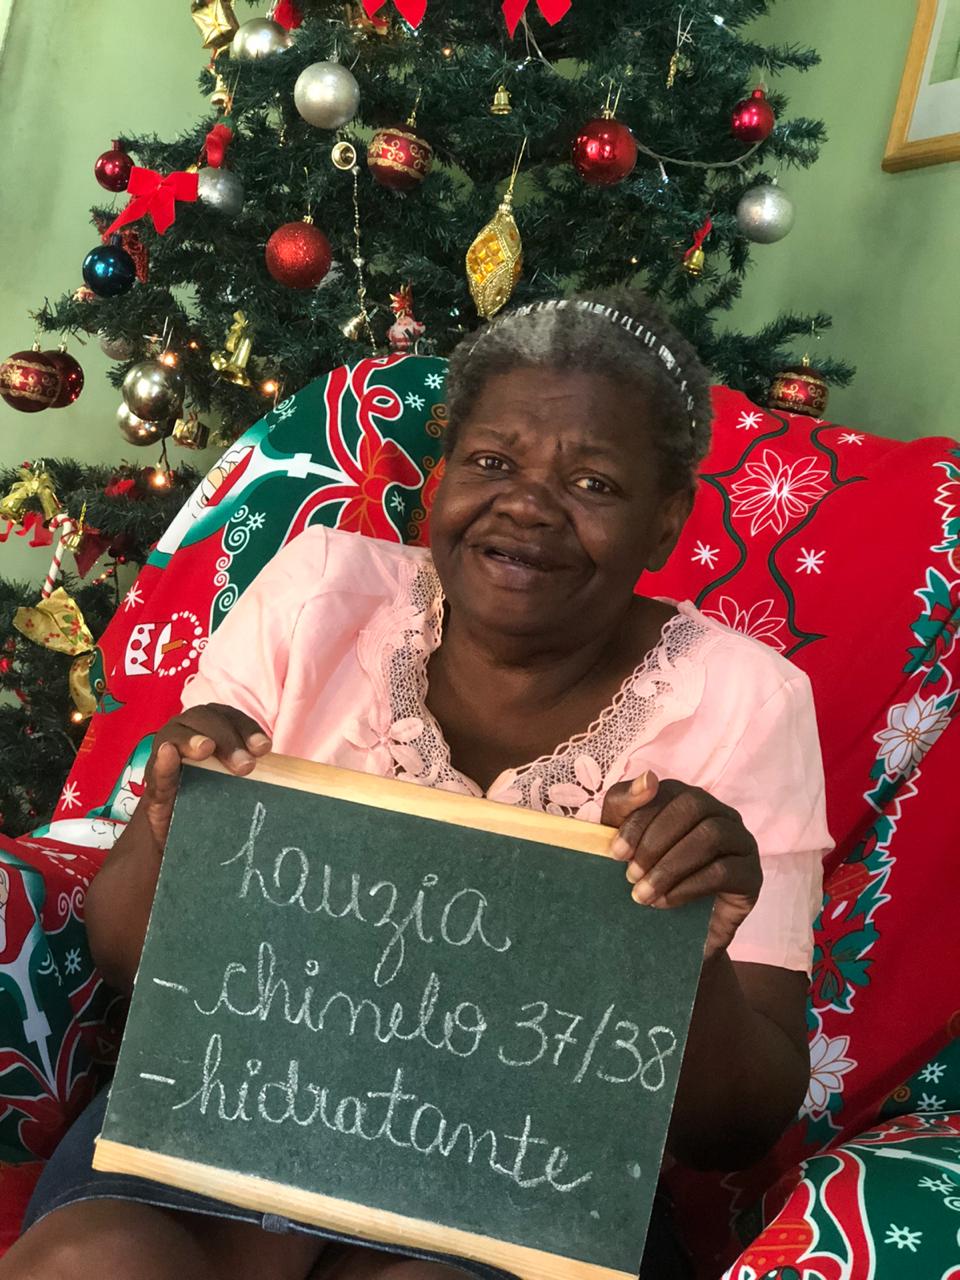 Lauzia
- chinelo 37/38
- hidratante